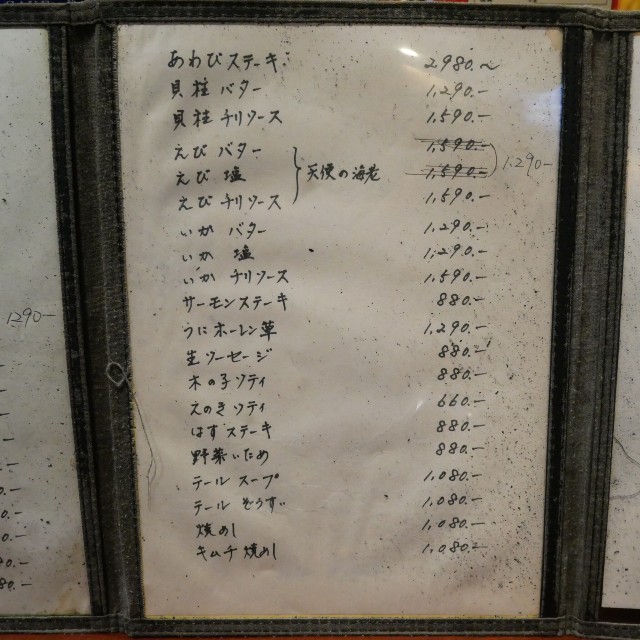 あわびステーキ 2,980.〜
貝柱 バター 1,290.-
貝柱 チリソース 1,590.-
えび バター 1,590.-
えび 塩 天使の海老 1,590.- 1,290-
えび チリソース 1,590.-
いか バター 1,290.-
いか 塩 1,290.-
いか チリソース 1,590.-
サーモンステーキ 880.-
うにホーレン草 1,290.-
生ソーセージ 880.-
木の子ソティ 880.-
えのきソティ 660.-
はすステーキ 880.-
野菜いため 880.-
テール スープ 1,080.-
テール ぞうすい 1,080.-
焼めし 1,080.-
キムチ焼めし 1,080.-
1290-